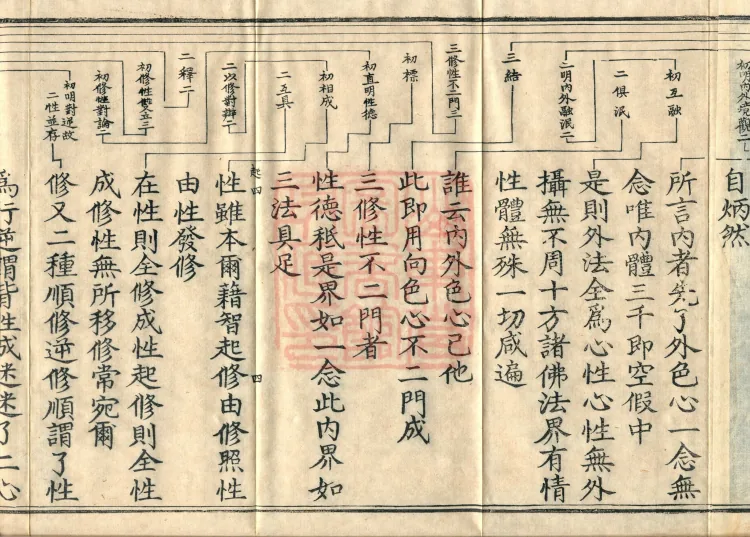 自炳然
初互融
所言內者先了外色心一念無
念唯內體三千即空假中
二俱泯
是則外法全爲心性心性無外
攝無不周十方諸佛法界有情
性體無殊一切咸遍
二明內外融泯二
三結
誰云內外色心己他
此即用向色心不二門成
三修性不二門三
初標
三修性不二門者
初直明性德
性德秖是界如一念此內界如
三法具足
初相成
二互具
二以修對辨二
性雖本爾藉智起修由修照性
由性發修
起四
四
二釋二
初修性雙立三
在性則全修成性起修則全性
成修性無所移修常宛爾
初修性對論二
初明對逆故
二性並存
修又二種順修逆修順謂了性
爲行逆謂背性成迷迷了二心